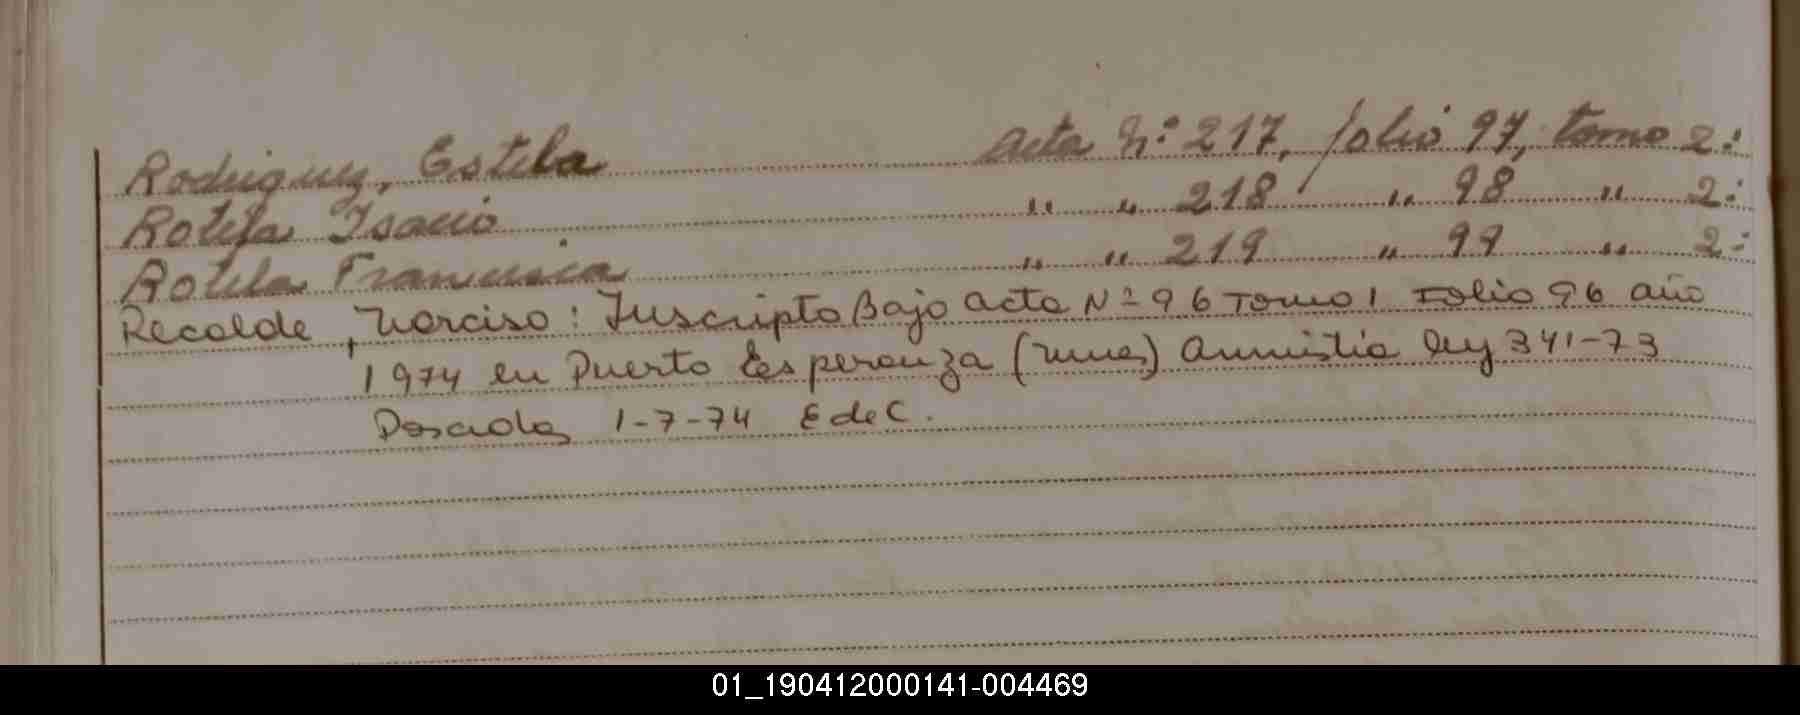 Rodriguez, Estela acta N°: 217, folio 97, tomo 2:
Rotela Isacio " " 218 " 98 " 2:
Rotela Francisca " " 219 " 99 " 2:
Recalde, Narciso: Inscripto Bajo acta Nº 96 Tomo 1 Folio 96 año
1974 en Puerto Esperanza (mnes) Amnistia ley 341-73
Posadas 1-7-74 E de C.
01_190412000141-004469